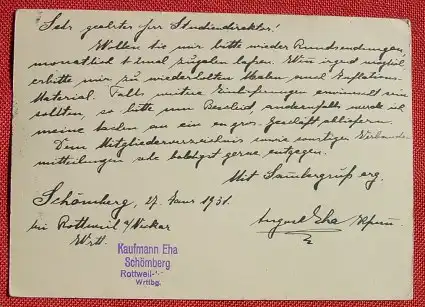 Sehr geehrter Herr Studiendirektor!
Wollen Sie mir bitte wieder Rundsendungen,
monatlich 1 mal zugehen lassen. Wenn irgend möglich
erbitte mir zu wiederholten Malen auch Inflations-
Material. Falls weitere Einlieferungen erwünscht sein
sollten, so bitte um Bescheid, andernfalls werde ich
meine Sachen an ein en gros. Geschäft abliefern.
Dem Mitgliederverzeichnis sowie sonstigen Verbands-
mitteilungen sehe baldigst gerne entgegen.
Mit Sammlergruß erg.
Schömberg, 27. Janr 1931.
August Eha
bei Rottweil a/Neckar
Wrtt.
Kaufmann Eha
Schömberg
Rottweil-
Wrttbg.